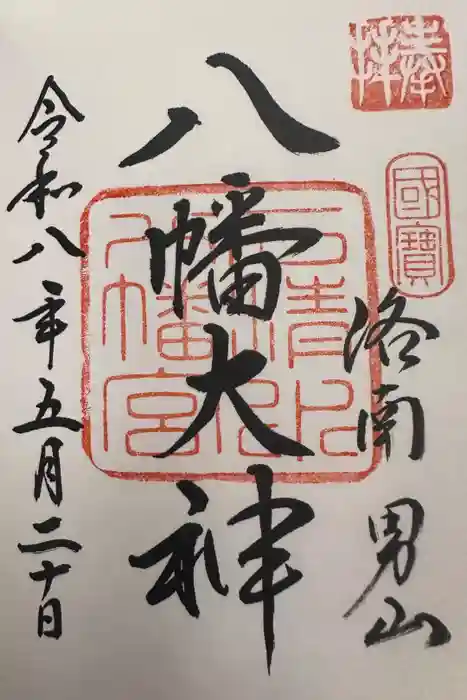 奉拝
國寶
洛南 男山
八幡大神
石清水八幡宮
令和八年五月二十日